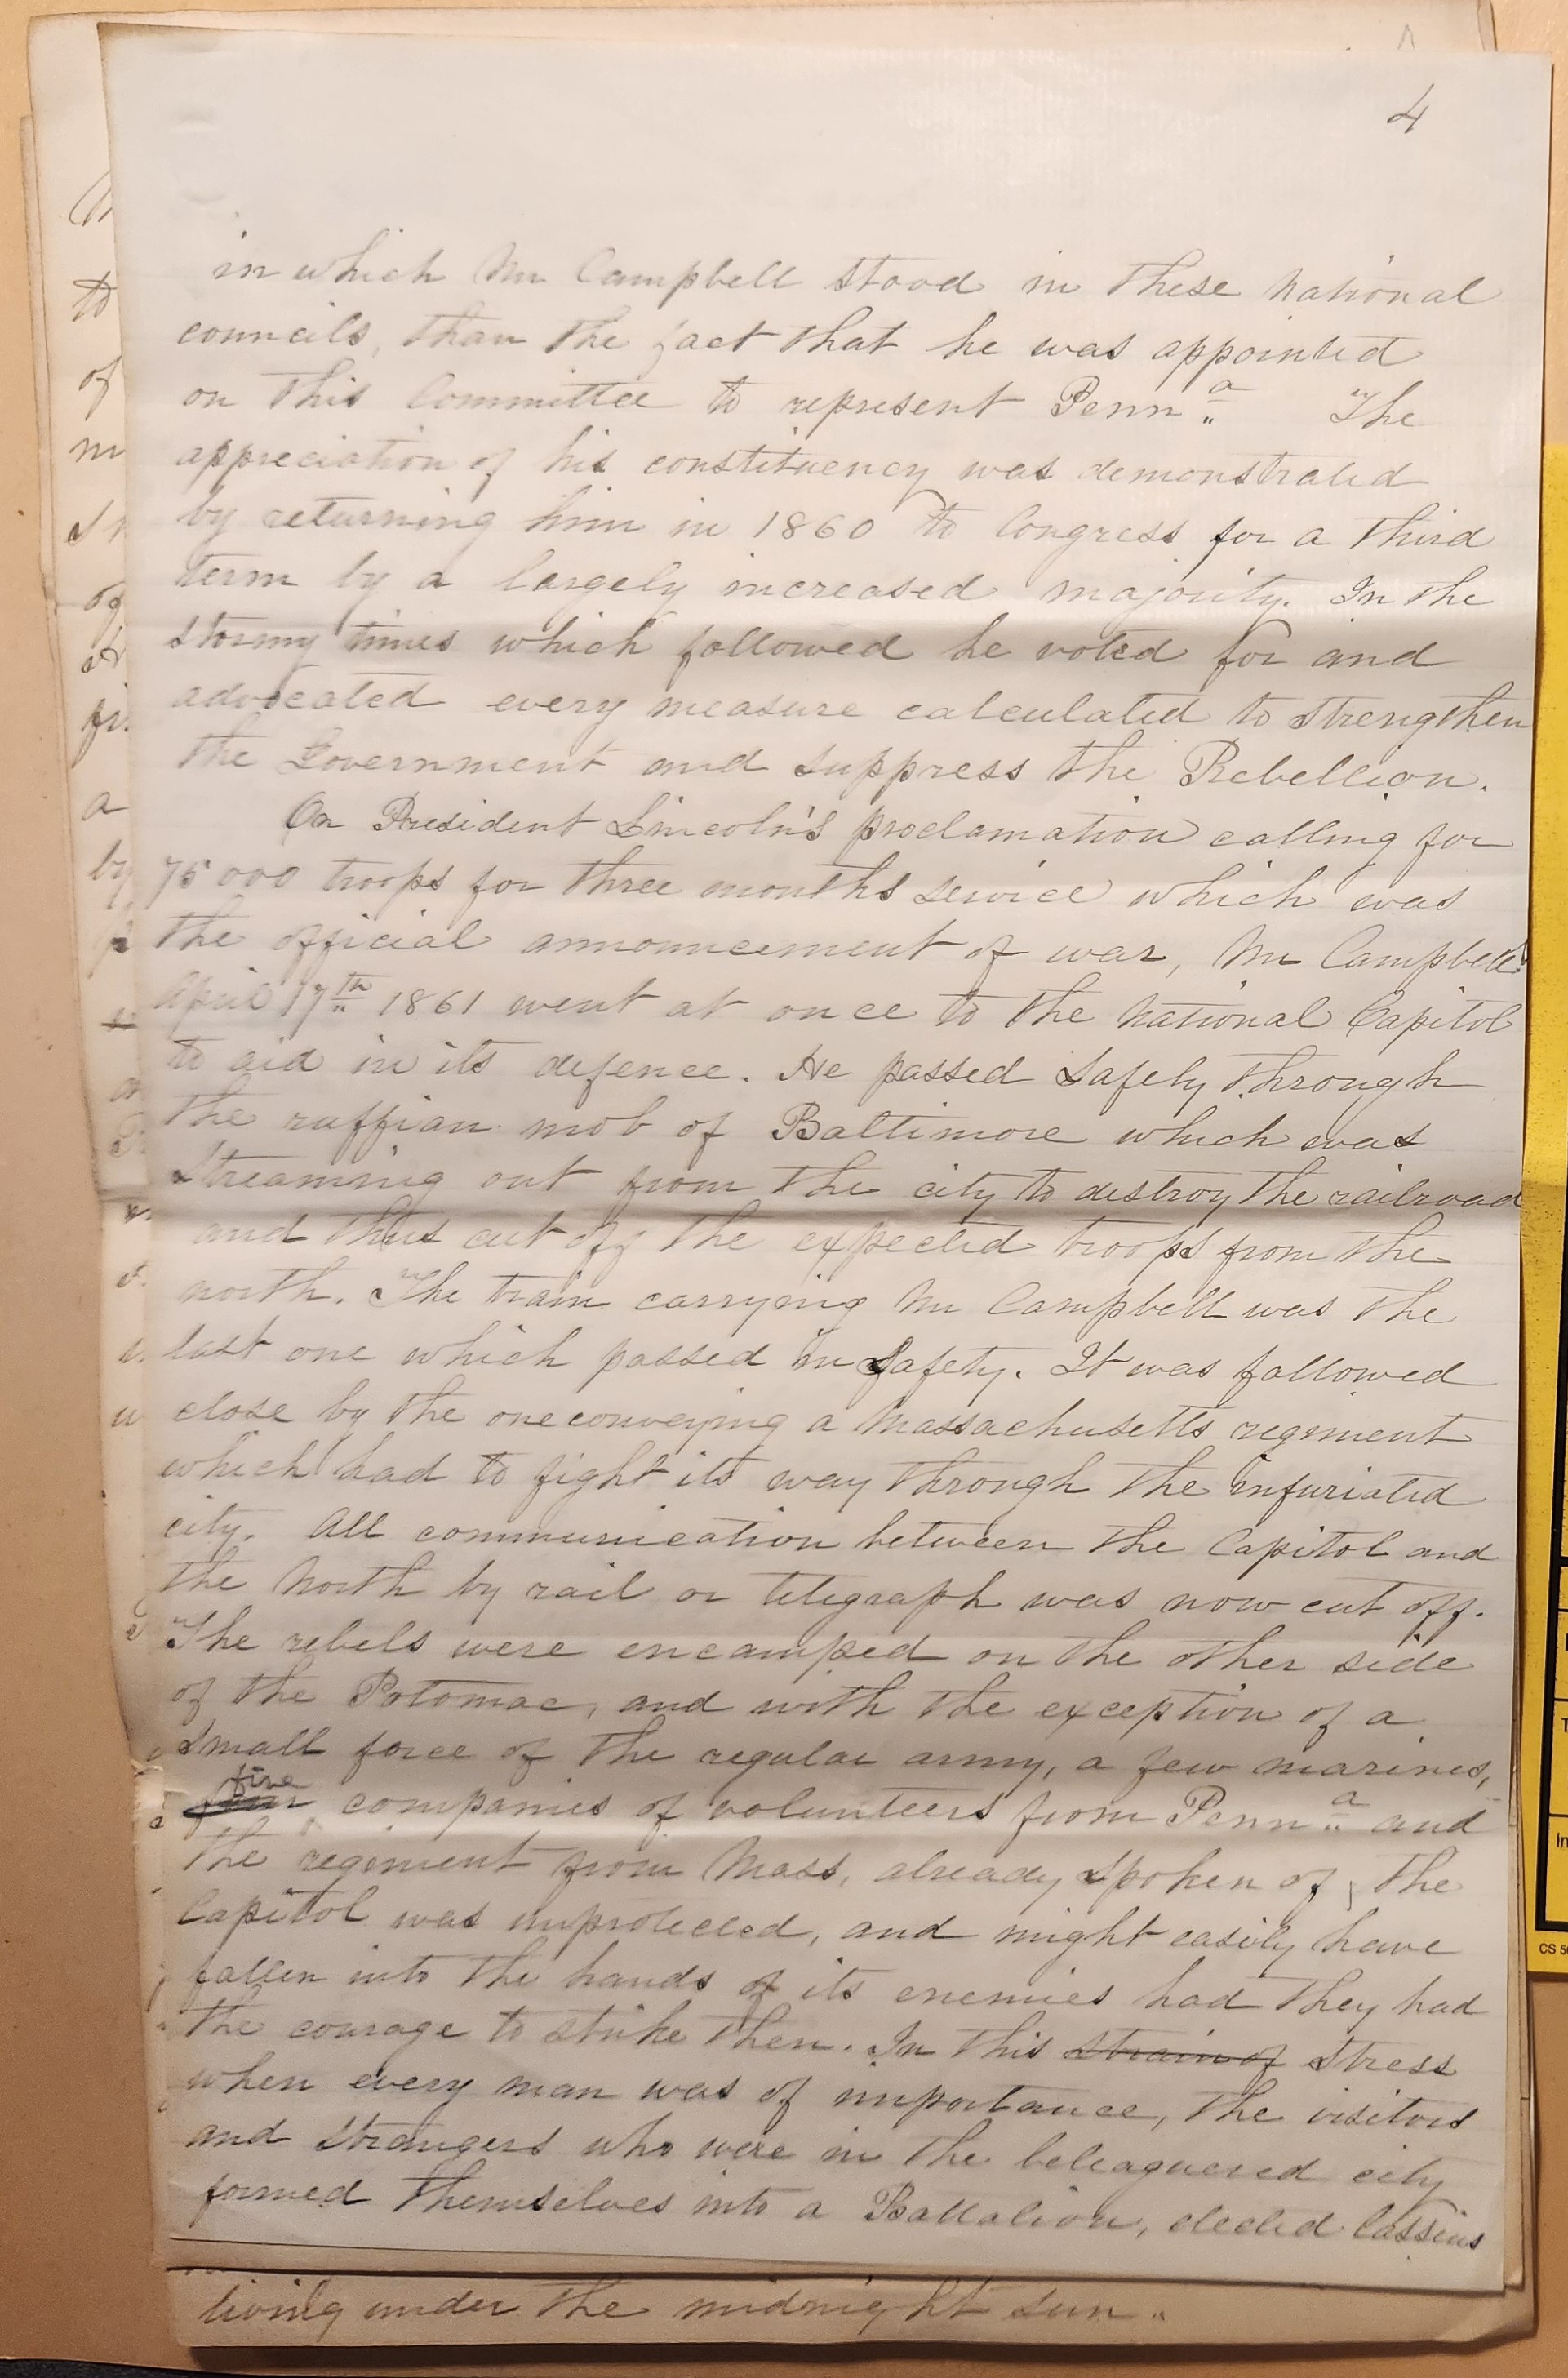 4
in which Mr Campbell stood in these National
councils, than the fact that he was appointed
on this Committee to represent Penn.ª The
appreciation of his constituency was demonstrated
by returning him in 1860 to Congress for a third
term by a largely increased majority. In the
stormy times which followed he voted for and
advocated every measure calculated to strengthen
the Government and suppress the Rebellion.
On President Lincoln's proclamation calling for
75 000 troops for three months service which was
the official announcement of war, Mr Campbell
April 17th 1861 went at once to the National Capitol
to aid in its defence. He passed safely through
the ruffian mob of Baltimore which was
streaming out from the city to destroy the railroad
and thus cut off the expected troops from the
north. The train carrying Mr Campbell was the
last one which passed in safety. It was followed
close by the one conveying a Massachusetts regiment
which had to fight its way through the infuriated
city. All communication between the Capitol and
the North by rail or telegraph was now cut off.
The rebels were encamped on the other side
of the Potomac, and with the exception of a
small force of the regular army, a few marines,
five
four companies of volunteers from Penn.ª and
the regiment from Mass, already spoken of, the
Capitol was unprotected, and might easily have
fallen into the hands of its enemies had they had
the courage to strike then. In this strain of stress
when every man was of importance, the visitors
and strangers who were in the beleaguered city
formed themselves into a Battalion, elected Cassius
living under the midnight sun."